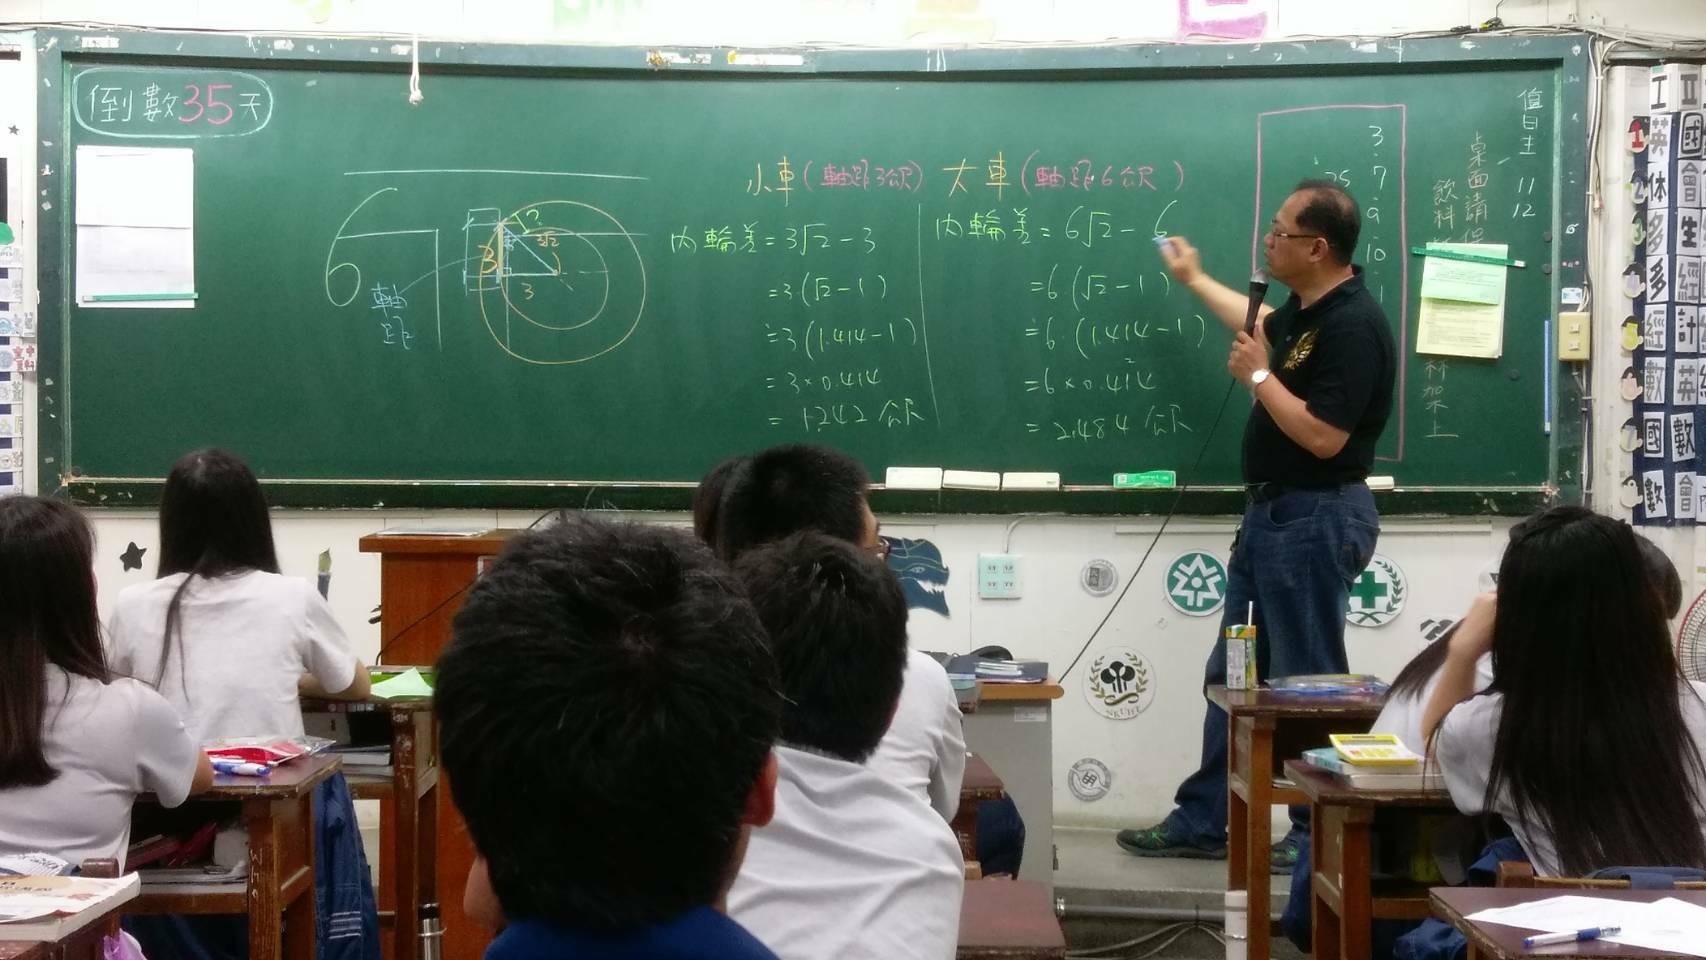 倒數35天
小車(軸距3公尺)
內輪差=3√2-3
=3(√2-1)
≒3(1.414-1)
=3×0.414
=1.242公尺
大車(軸距6公尺)
內輪差=6√2-6
=6(√2-1)
≒6(1.414-1)
=6×0.414
=2.484公尺
6
?
3√2
3
3
軸
距
3
7
9
10
25
值日生 11
12
桌面請保
飲料
杯架不上
英 國
体 會
多 生
多 經
經 計
數 英
國 數
數 會
NKUHT